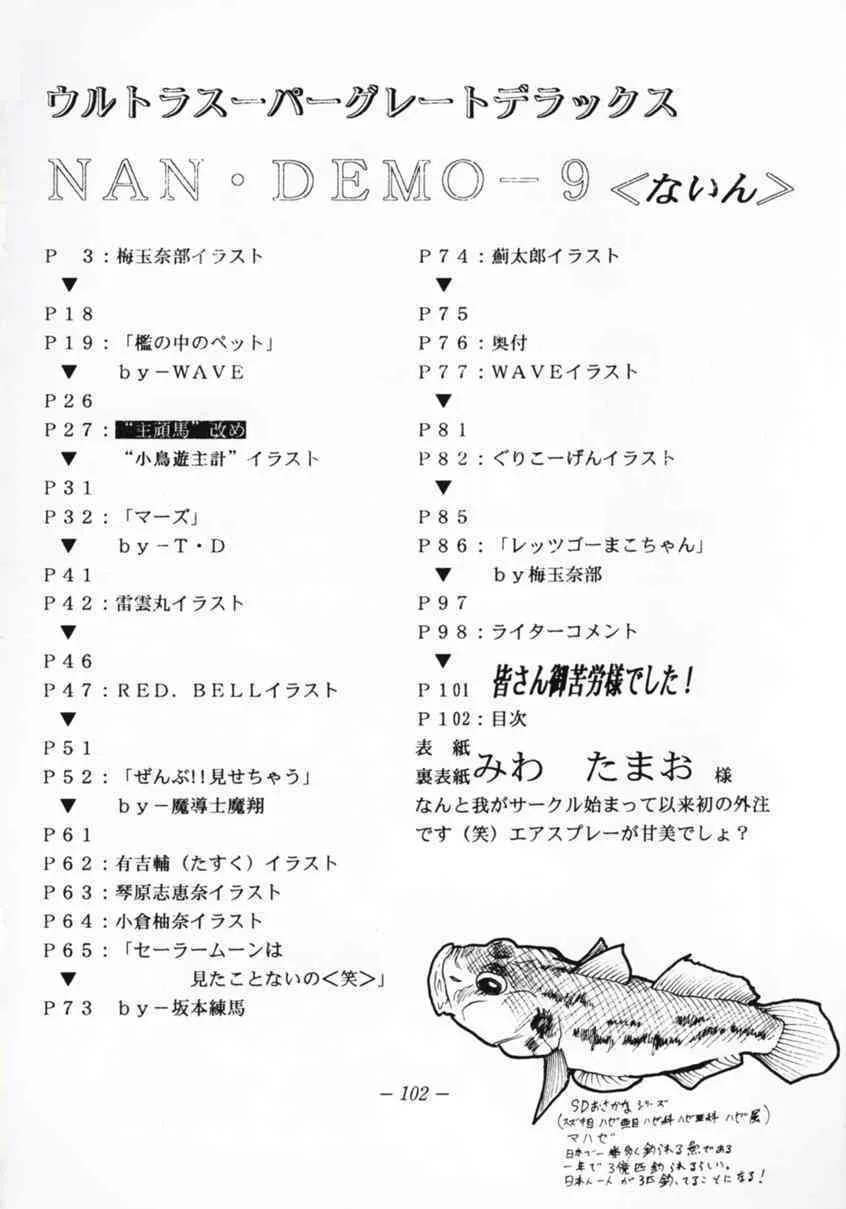 ウルトラスーパーグレートデラックス
NAN・DEMO－9＜ないん＞
P　3：梅玉奈部イラスト
▼
P18
P19：「檻の中のペット」
▼　by－WAVE
P26
P27：“主頑馬”改め
▼　“小鳥遊主計”イラスト
P31
P32：「マーズ」
▼　by－T・D
P41
P42：雷雲丸イラスト
▼
P46
P47：RED．BELLイラスト
▼
P51
P52：「ぜんぶ!!見せちゃう」
▼　by－魔導士魔翔
P61
P62：有吉輔（たすく）イラスト
P63：琴原志恵奈イラスト
P64：小倉柚奈イラスト
P65：「セーラームーンは
▼　見たことないの＜笑＞」
P73　by－坂本練馬
P74：薊太郎イラスト
▼
P75
P76：奥付
P77：WAVEイラスト
▼
P81
P82：ぐりこーげんイラスト
▼
P85
P86：「レッツゴーまこちゃん」
▼　by梅玉奈部
P97
P98：ライターコメント
▼
P101　皆さん御苦労様でした！
P102：目次
表　紙
裏表紙　みわ　たまお　様
なんと我がサークル始まって以来初の外注
です（笑）エアスプレーが甘美でしょ？
SDおさかなシリーズ
(スズキ目 ハゼ亜目 ハゼ科 ハゼ亜科 ハゼ属)
マハゼ
日本で一番多く釣られる魚である
一年で3億匹釣られるらしい。
日本人一人が3匹釣ってることになる！
－102－